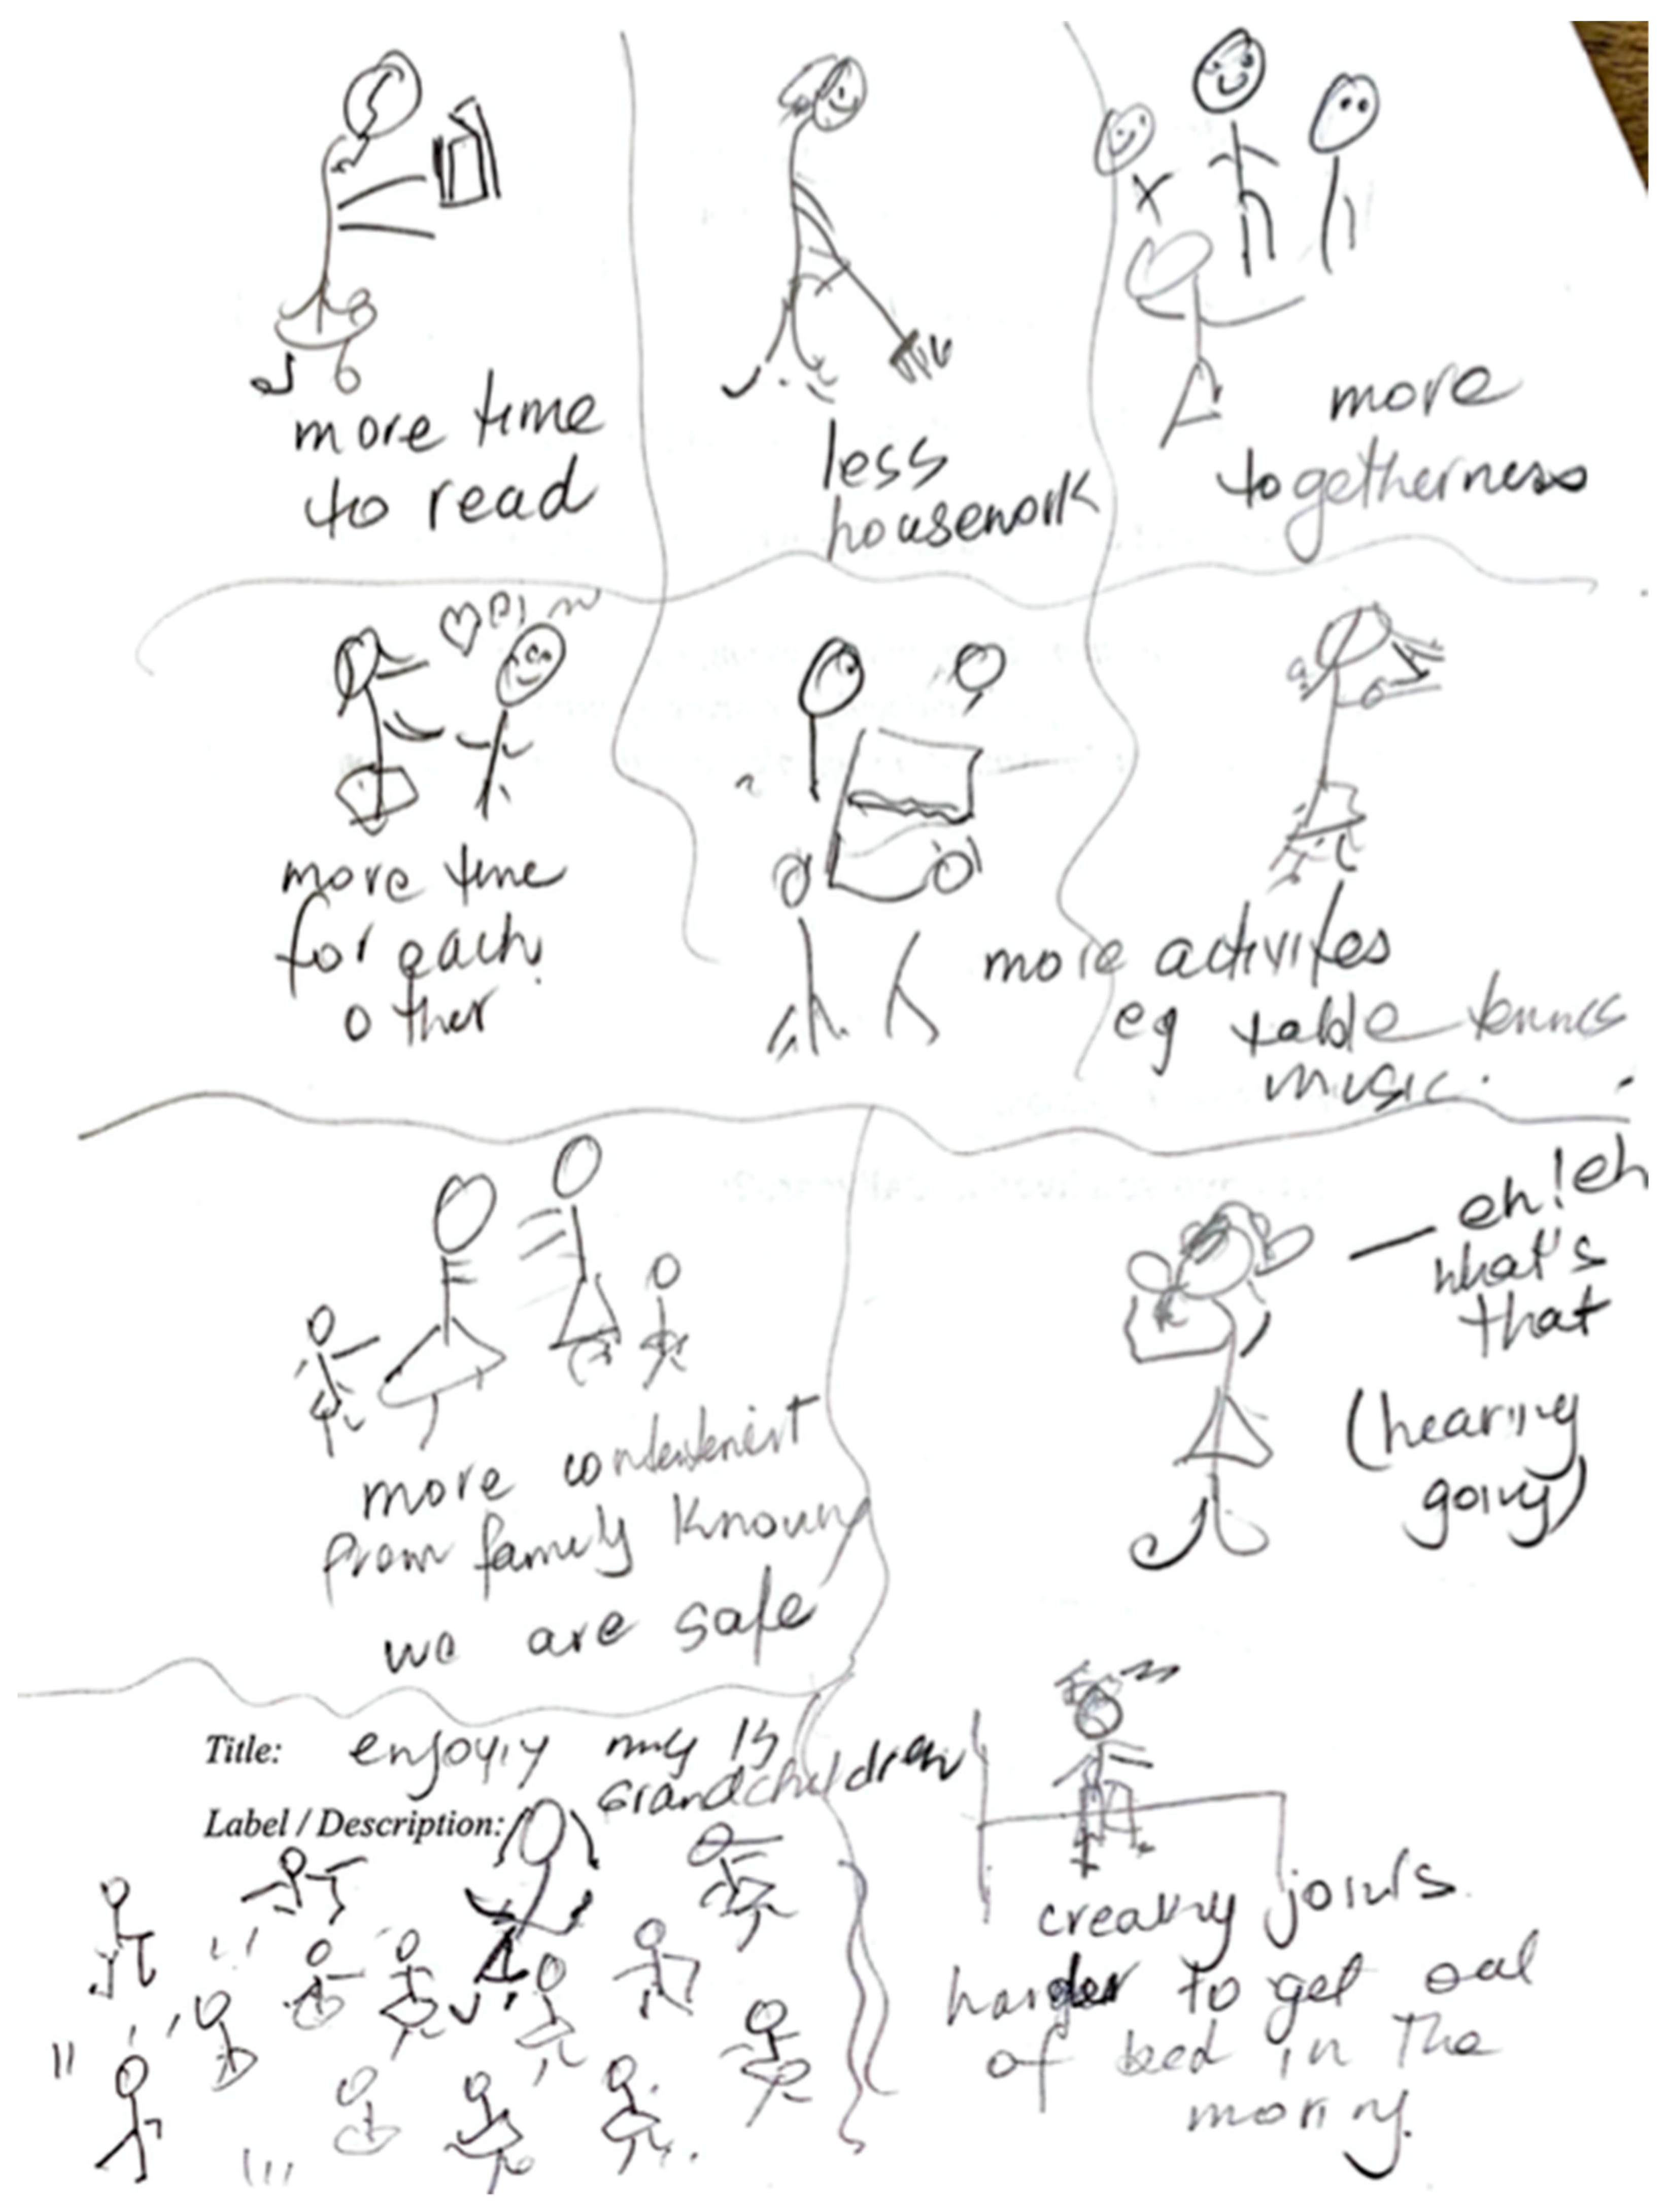 more time
to read
less
housework
more
togetherness
more time
for each
other
more activites
eg table tennis
music.
eh! eh
what's
that
(hearing
going)
more contentment
from family knowing
we are safe
Title: enjoying my
Grandchildren
Label / Description:
creaky joints
harder to get out
of bed in the
morning.